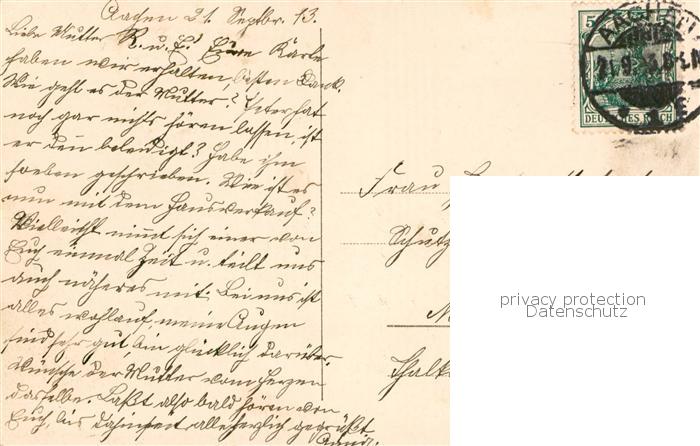 Aachen 21. Septbr. 13.
Liebe Mutter K. u. E.! Eure Karte
haben wir erhalten, besten Dank.
Wie geht es der Mutter?
noch gar nichts hören lassen, ist
er denn beleidigt? Habe ihm
soeben geschrieben. Wie ist es
nun mit dem Hausverkauf?
Vielleicht nimmt sich einer von
Euch einmal Zeit u. teilt uns
auch näheres mit. Bei uns ist
alles wohlauf, meine Augen
sind sehr gut, bin glücklich darüber,
wünsche der Mutter von Herzen
dasselbe. Laßt also bald hören von
Euch, bis dahin seit alle herzlich gegrüßt
Frau
Schutz
Thalk
5 5
DEUTSCHES REICH
AACHEN
21.9.
privacy protection
Datenschutz